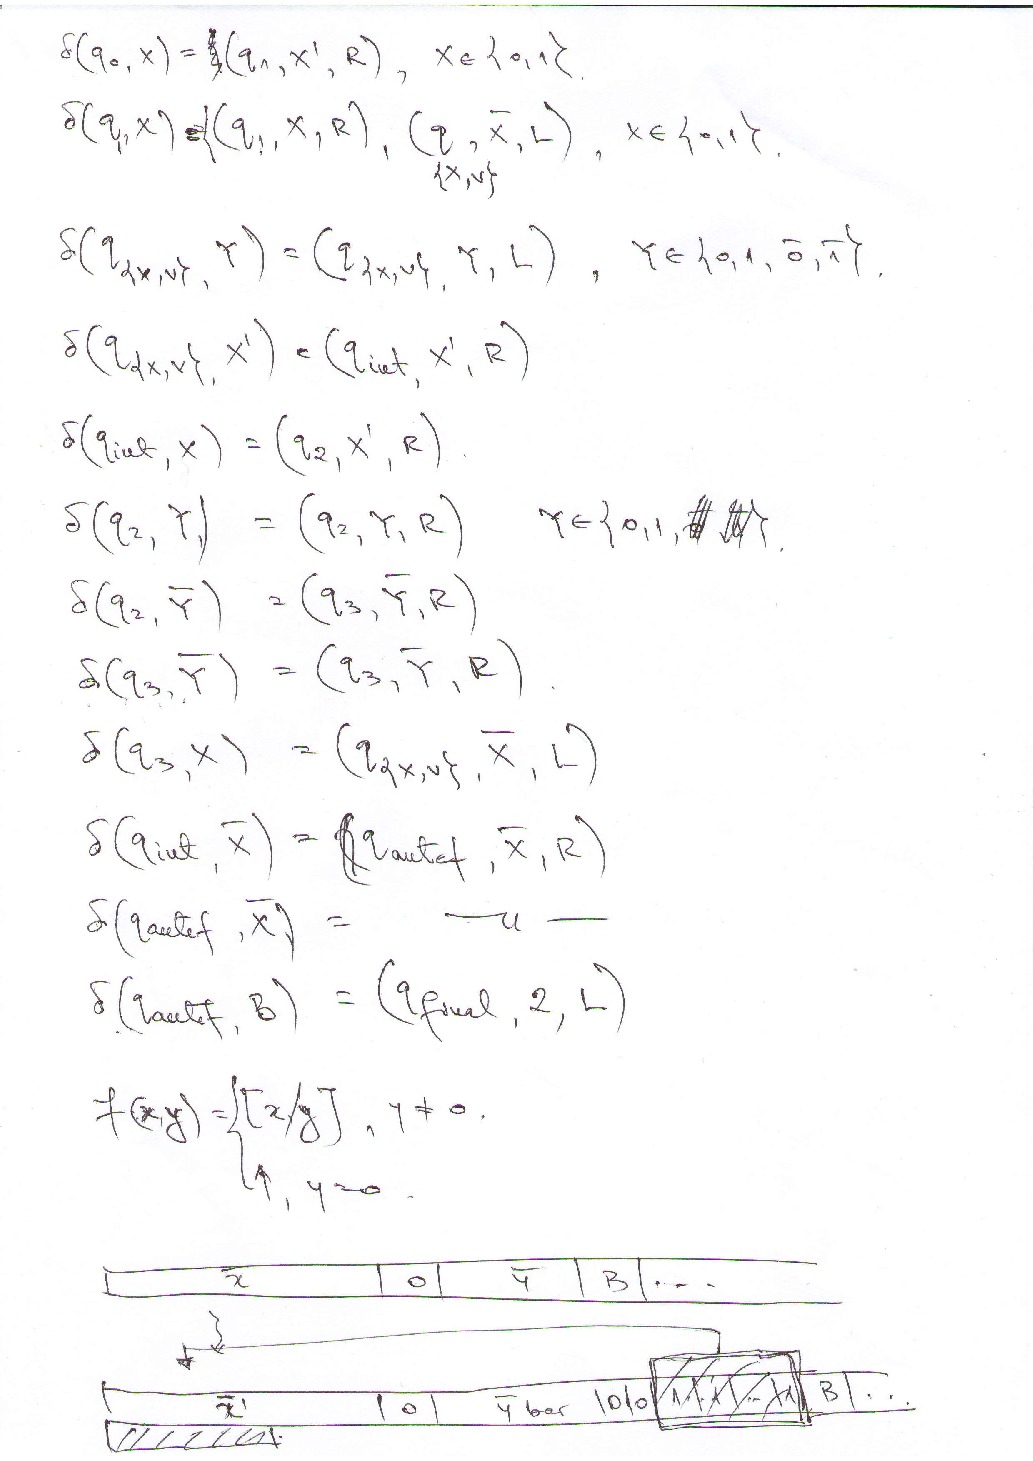 δ(q₀, x) = (q₁, x', R), x ∈ {0,1}.
δ(q₁, x) = {(q₁, x, R), (q_{x,v}, x̄, L), x ∈ {0,1}.
δ(q_{x,v}, Y) = (q_{x,v}, Y, L), Y ∈ {0,1, 0̄, 1̄}.
δ(q_{x,v}, x') = (q_int, x', R)
δ(q_int, x) = (q₂, x', R).
δ(q₂, Y) = (q₂, Y, R) Y ∈ {0,1, }.
δ(q₂, Ȳ) = (q₃, Ȳ, R)
δ(q₃, Ȳ) = (q₃, Ȳ, R).
δ(q₃, x) = (q_{x,v}, x̄, L)
δ(q_int, x̄) = (q_antef, x̄, R)
δ(q_antef, x̄) = — u —
δ(q_antef, B) = (q_final, 2, L)
f(x,y) = { [x/y], y ≠ 0.
↑, y = 0.
x̄ | 0 | ȳ | B | ...
x̄' | 0 | ȳ bar |0|0| 1 1 ... 1 | B | ..